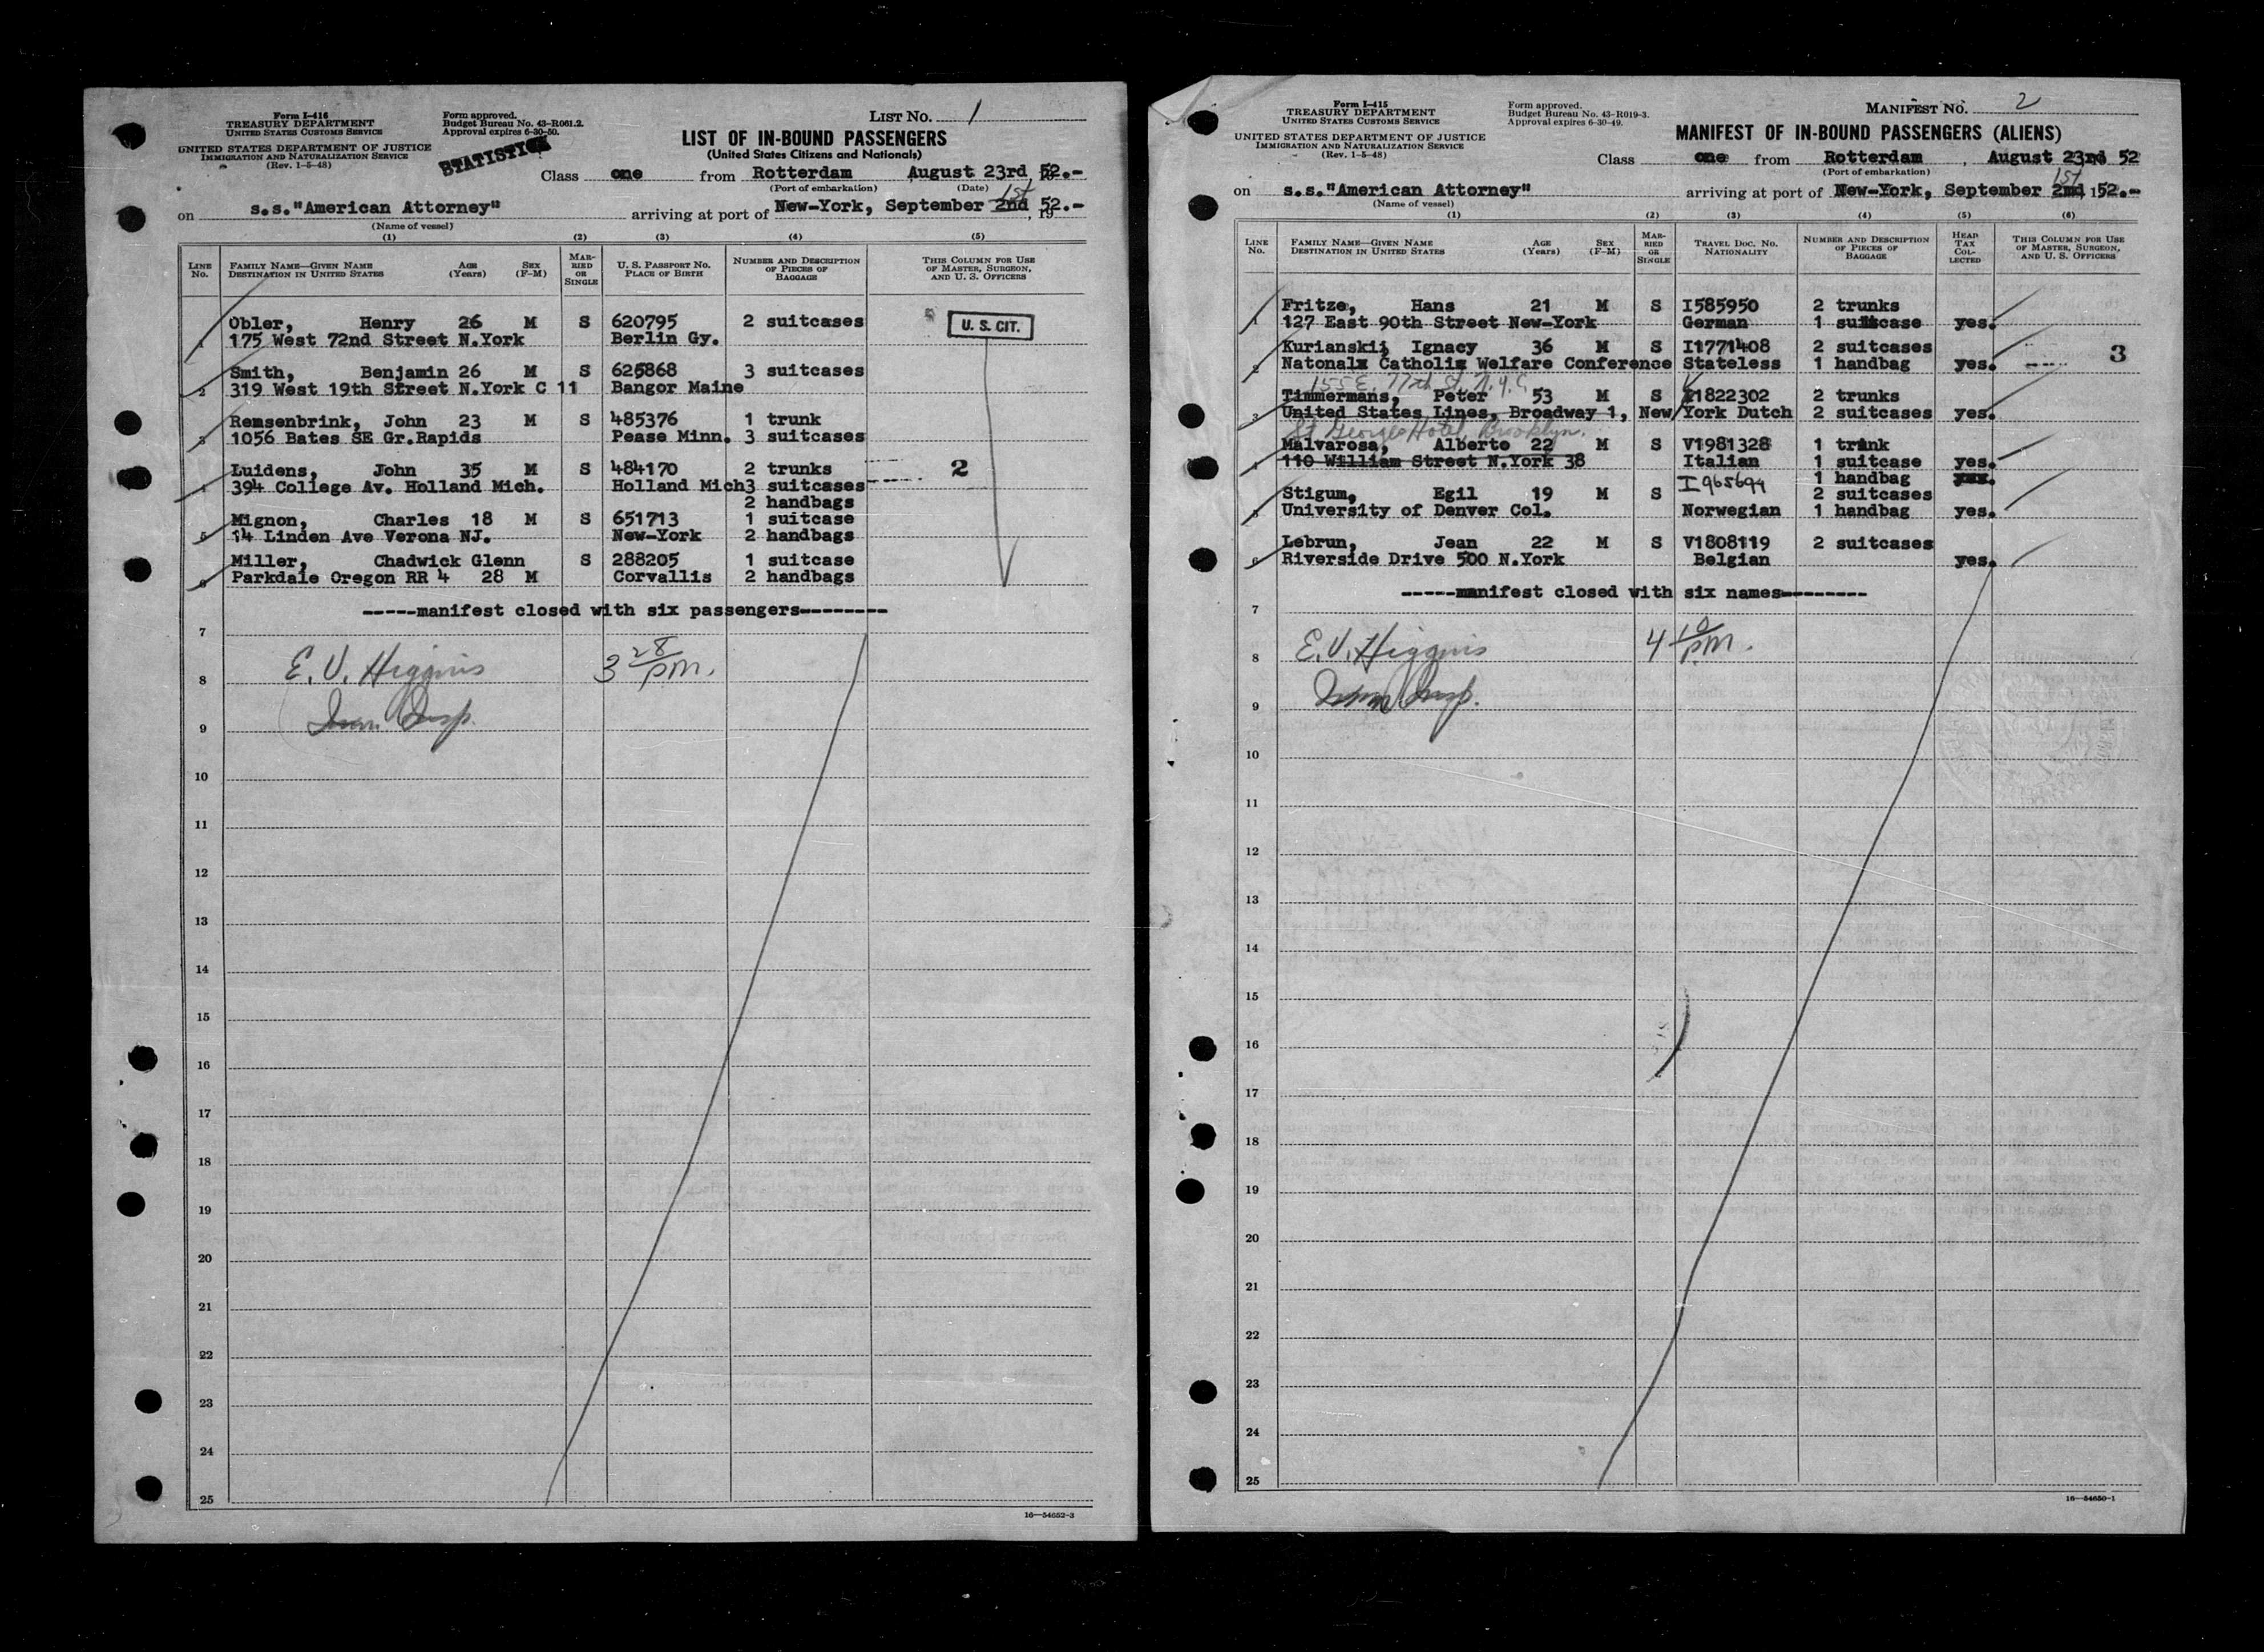 Form I-416
TREASURY DEPARTMENT
UNITED STATES CUSTOMS SERVICE
UNITED STATES DEPARTMENT OF JUSTICE
IMMIGRATION AND NATURALIZATION SERVICE
(Rev. 1-5-48)
Form approved.
Budget Bureau No. 43-R061.2.
Approval expires 6-30-50.
LIST NO. 1
LIST OF IN-BOUND PASSENGERS
(United States Citizens and Nationals)
Class one from Rotterdam August 23rd 52.-
(Port of embarkation) (Date)
1st
on s.s."American Attorney" arriving at port of New-York, September 2nd, 19 52.-
(Name of vessel)
(1) (2) (3) (4) (5)
LINE NO. FAMILY NAME—GIVEN NAME DESTINATION IN UNITED STATES AGE (Years) SEX (F-M) MARRIED OR SINGLE U. S. PASSPORT NO. PLACE OF BIRTH NUMBER AND DESCRIPTION OF PIECES OF BAGGAGE THIS COLUMN FOR USE OF MASTER, SURGEON, AND U. S. OFFICERS
Obler, Henry 26 M S 620795 2 suitcases U. S. CIT.
1 175 West 72nd Street N.York Berlin Gy.
Smith, Benjamin 26 M S 625868 3 suitcases
2 319 West 19th Street N.York C 11 Bangor Maine
Remsenbrink, John 23 M S 485376 1 trunk
3 1056 Bates SE Gr.Rapids Pease Minn. 3 suitcases
Luidens, John 35 M S 484170 2 trunks 2
4 394 College Av. Holland Mich. Holland Mich 3 suitcases
2 handbags
Mignon, Charles 18 M S 651713 1 suitcase
5 14 Linden Ave Verona NJ. New-York 2 handbags
Miller, Chadwick Glenn S 288205 1 suitcase
6 Parkdale Oregon RR 4 28 M Corvallis 2 handbags
-----manifest closed with six passengers--------
7
E. V. Higgins 3 28 pm.
8
Imm Insp.
9
10
11
12
13
14
15
16
17
18
19
20
21
22
23
24
25
16—54652-3
Form I-415
TREASURY DEPARTMENT
UNITED STATES CUSTOMS SERVICE
UNITED STATES DEPARTMENT OF JUSTICE
IMMIGRATION AND NATURALIZATION SERVICE
(Rev. 1-5-48)
Form approved.
Budget Bureau No. 43-R019-3.
Approval expires 6-30-49.
MANIFEST NO. 2
MANIFEST OF IN-BOUND PASSENGERS (ALIENS)
Class one from Rotterdam, August 23rd 52
(Port of embarkation)
1st
on s.s."American Attorney" arriving at port of New-York, September 2nd, 19 52.-
(Name of vessel)
(1) (2) (3) (4) (5) (6)
LINE NO. FAMILY NAME—GIVEN NAME DESTINATION IN UNITED STATES AGE (Years) SEX (F-M) MARRIED OR SINGLE TRAVEL DOC. NO. NATIONALITY NUMBER AND DESCRIPTION OF PIECES OF BAGGAGE HEAD TAX COLLECTED THIS COLUMN FOR USE OF MASTER, SURGEON, AND U. S. OFFICERS
Fritze, Hans 21 M S I585950 2 trunks
1 127 East 90th Street New-York German 1 suitcase yes.
Kurianskij Ignacy 36 M S I1771408 2 suitcases 3
2 Natonalx Catholix Welfare Conference Stateless 1 handbag yes.
155 E. 77th St. N.Y.C.
Timmermans, Peter 53 M S I1822302 2 trunks
3 United States Lines, Broadway 1, New York Dutch 2 suitcases yes.
St Georges Hotel, Brooklyn.
Malvarosa, Alberto 22 M S V1981328 1 trunk
4 110 William Street N.York 38 Italian 1 suitcase yes.
I965694 1 handbag
Stigum, Egil 19 M S 2 suitcases
5 University of Denver Col. Norwegian 1 handbag yes.
Lebrun, Jean 22 M S V1808119 2 suitcases
6 Riverside Drive 500 N.York Belgian yes.
-----manifest closed with six names--------
7
E. V. Higgins 4 10 pm.
8
Imm Insp.
9
10
11
12
13
14
15
16
17
18
19
20
21
22
23
24
25
16—54650-1